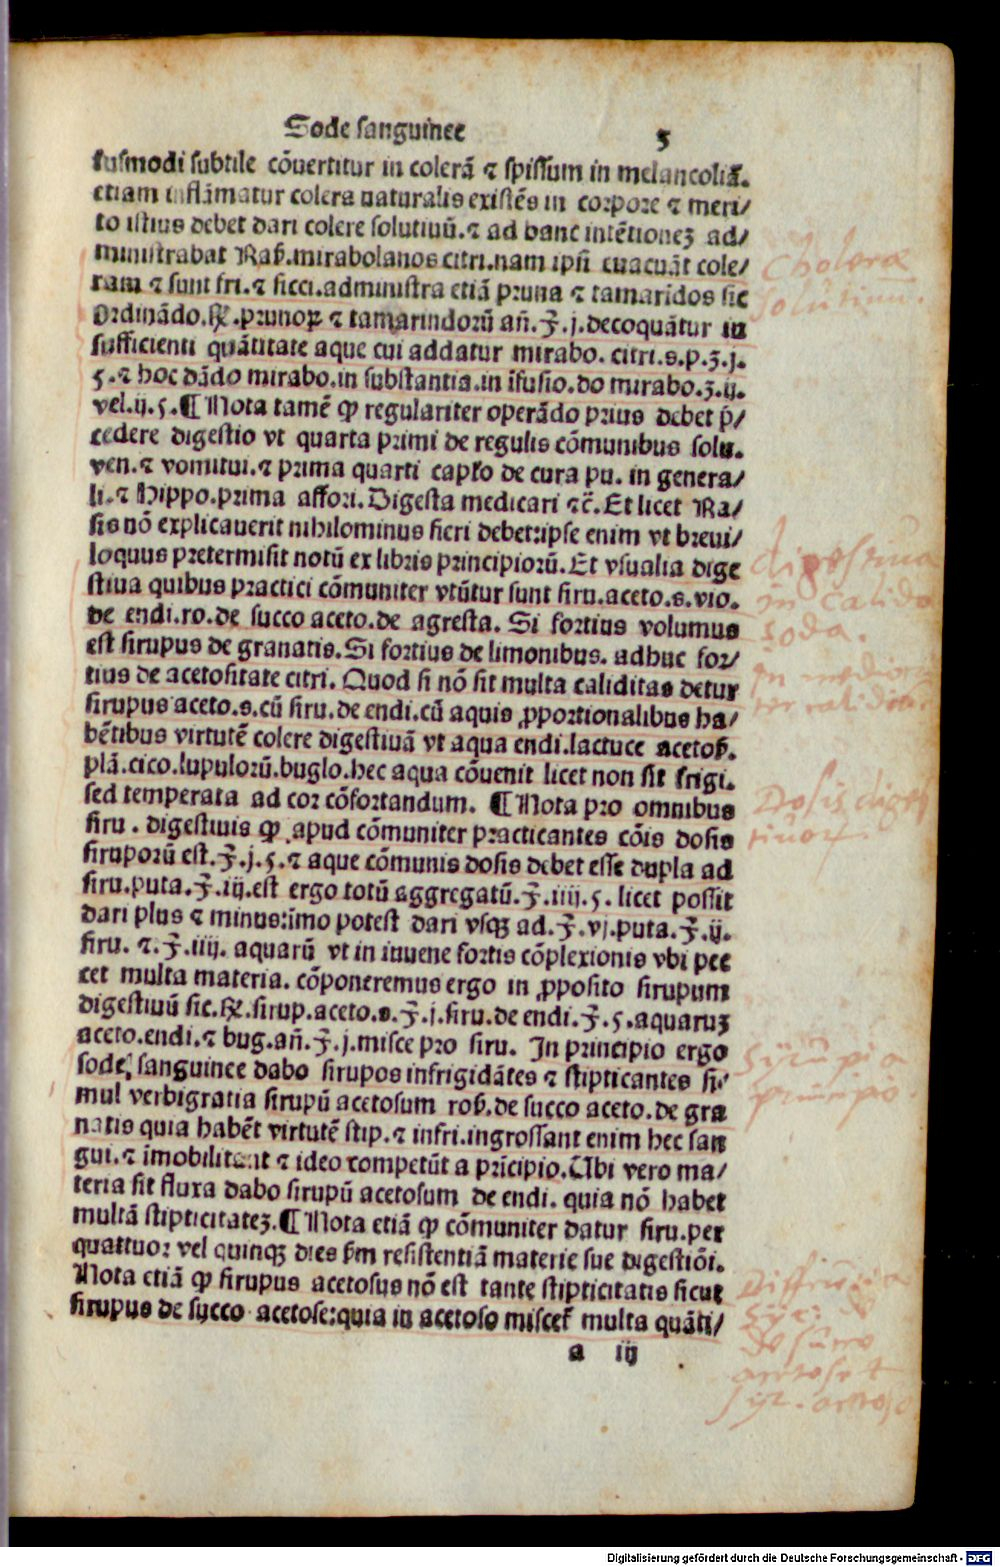 Sode sanguinee 5
iusmodi subtile cõuertitur in colerã ⁊ spissum in melancoliã.
etiam inflãmatur colera naturalis existẽs in corpore ⁊ meri/
to istius debet dari colere solutiuũ.⁊ ad hanc intẽtioneʒ ad/
ministrabat Raß.mirabolanos citri.nam ipsi euacuãt cole/
ram ⁊ sunt fri.⁊ sicci.administra etiã pruna ⁊ tamaridos sic
Ordinãdo.℞.prunoꝝ ⁊ tamarindorũ añ.℥.j.decoquãtur in
sufficienti quãtitate aque cui addatur mirabo. citri.s.p.ʒ.j.
5.⁊ hoc dãdo mirabo.in substantia.in ĩfusio.do mirabo.ʒ.ij.
vel.ij.5.¶ Nota tamẽ ꝙ regulariter operãdo prius debet p̃/
cedere digestio vt quarta primi de regulis cõmunibus solu.
ven.⁊ vomitui.⁊ prima quarti capťo de cura pu. in genera/
li.⁊ Hippo.prima affori.Digesta medicari ⁊c̃.Et licet Ra/
sis nõ explicauerit nihilominus fieri debet:ipse enim vt breui/
loquus pretermisit notũ ex libris principiorũ.Et vsualia dige
stiua quibus practici cõmuniter vtũtur sunt siru.aceto.s.vio.
de endi.ro.de succo aceto.de agresta. Si fortius volumus
est sirupus de granatis.Si fortius de limonibus. adhuc for/
tius de acetositate citri. Quod si nõ sit multa caliditas detur
sirupus aceto.s.cũ siru.de endi.cũ aquis ꝓportionalibus ha/
bẽtibus virtutẽ colere digestiuã vt aqua endi.lactuce acetoß.
plã.cico.lupulorũ.buglo.hec aqua cõuenit licet non sit frigi.
sed temperata ad cor cõfortandum. ¶ Nota pro omnibus
siru . digestiuis ꝙ apud cõmuniter practicantes cõis dosis
siruporũ est.℥.j.5.⁊ aque cõmunis dosis debet esse dupla ad
siru.puta.℥.iij.est ergo totũ aggregatũ.℥.iiij.5. licet possit
dari plus ⁊ minus:imo potest dari vsqʒ ad.℥.vj.puta.℥.ij.
siru. ⁊.℥.iiij. aquarũ vt in iuuene fortis cõplexionis vbi pec
cet multa materia. cõponeremus ergo in ꝓposito sirupum
digestiuũ sic.℞.sirup.aceto.s.℥.j.siru.de endi.℥.5.aquaruʒ
aceto.endi.⁊ bug.añ.℥.j.misce pro siru. In principio ergo
sode sanguinee dabo sirupos infrigidãtes ⁊ stipticantes si/
mul verbigratia sirupũ acetosum roß.de succo aceto.de gra
natis quia habẽt virtutẽ stip.⁊ infri.ingrossant enim hec san
gui.⁊ ĩmobilitant ⁊ ideo competũt a prĩcipio.Ubi vero ma/
teria sit fluxa dabo sirupũ acetosum de endi. quia nõ habet
multã stipticitateʒ.¶ Nota etiã ꝙ cõmuniter datur siru.per
quattuor vel quinqʒ dies ßm resistentiã materie sue digestiõi.
Nota etiã ꝙ sirupus acetosus nõ est tante stipticitatis sicut
sirupus de succo acetose:quia in acetoso miscet̃ multa quãti/
a iij
Cholerae
solutiuũ.
digestiua
in calida
soda.
Dosis diges
tiuor.
Syrũpi a
principio.
Differentia
syr: de
de succo
acetose et
syr. acetoso
Digitalisierung gefördert durch die Deutsche Forschungsgemeinschaft - DFG